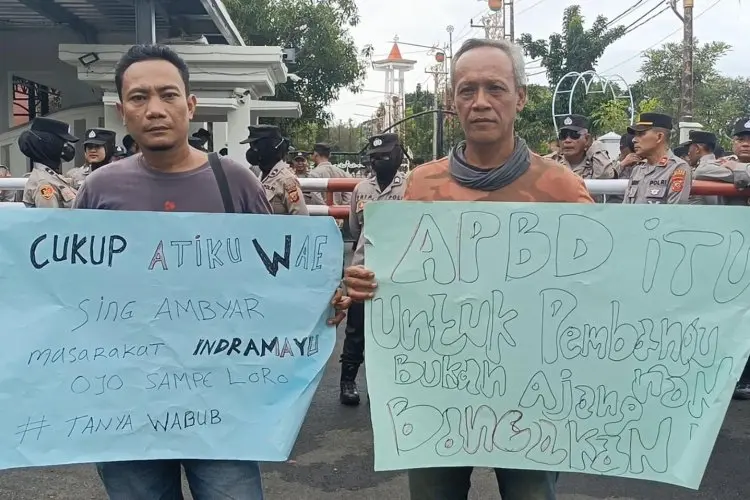 CUKUP ATIKU WAE
SING AMBYAR
MASARAKAT INDRAMAYU
OJO SAMPE LORO
# TANYA WABUB
APBD iTU
Untuk Pembangunan
Bukan Ajang
BANCAKAN
POLISI